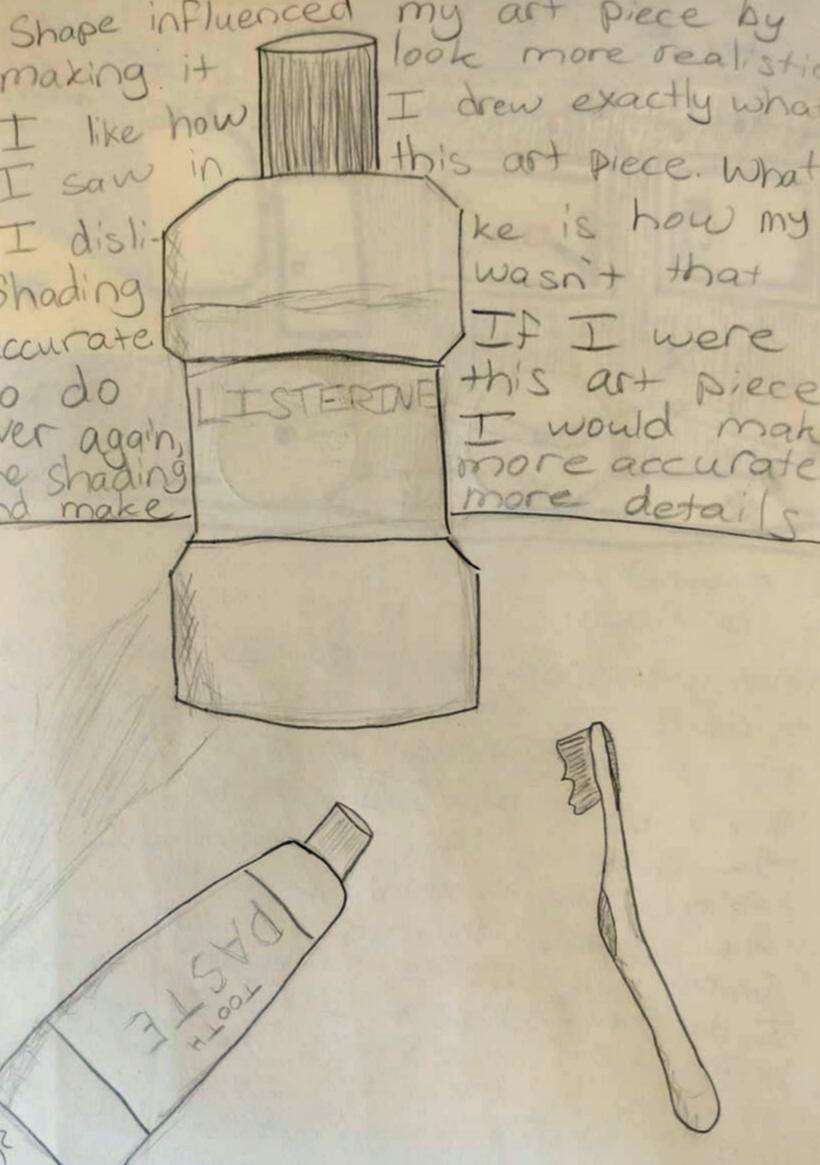 Shape influenced my art piece by
making it look more realistic
I like how I drew exactly what
I saw in this art piece. What
I disli- ke is how my
Shading wasn't that
ccurate. If I were
o do this art piece
ver again, I would mak
e shading more accurate
nd make more details
LISTERINE
TOOTH
PASTE